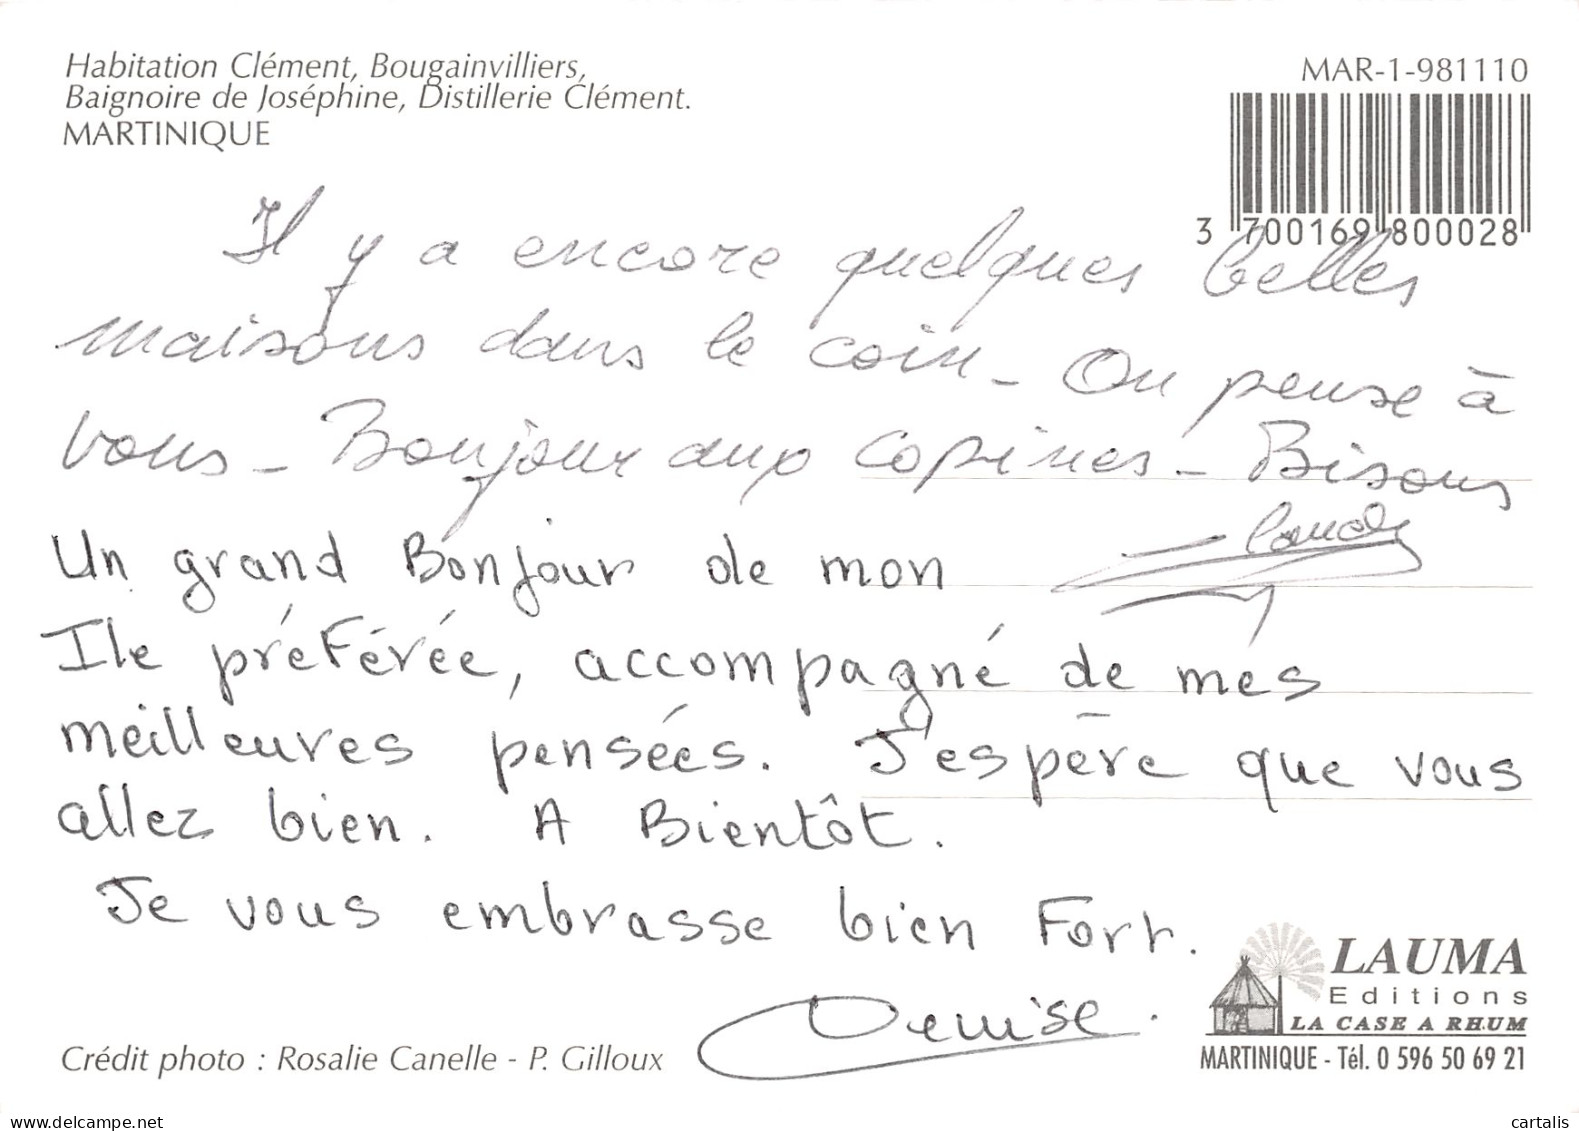 Habitation Clément, Bougainvilliers,
Baignoire de Joséphine, Distillerie Clément.
MARTINIQUE
MAR-1-981110
3 700169 800028
Il y a encore quelques belles
maisons dans le coin - On pense à
vous - Bonjour aux copines - Bisous
Un grand Bonjour de mon
Ile préférée, accompagné de mes
meilleures pensées. J'espère que vous
allez bien. A Bientôt.
Je vous embrasse bien Fort.
Denise.
LAUMA
Editions
LA CASE A RHUM
MARTINIQUE - Tél. 0 596 50 69 21
Crédit photo : Rosalie Canelle - P. Gilloux
www.delcampe.net
cartalis